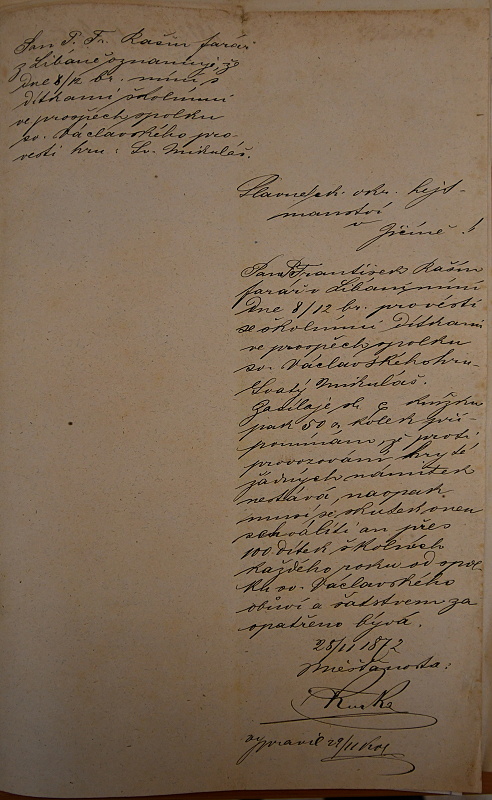 Pan P. Fr. Rašín farář
z Libáně oznamuje, že
dne 8/12 br. míní s
dítkami školními
ve prospěch spolku
sv. Václavského pro-
vésti hru: Sv. Mikuláš.
Slavné c. k. okr. hejt-
manství
v Jičíně!
Pan František Rašín
farář v Libáni míní
dne 8/12 br. provésti
se školními dítkami
ve prospěch spolku
sv. Václavského hru
Svatý Mikuláš.
Zasílaje
pak 50 kolek při-
pomínám že proti
provozování hry té
žádných námitek
nestává, naopak
musí se skutek onen
schváliti an přes
100 dítek školních
každého roku od spol-
ku sv. Václavského
obuví a šatstvem za
opatřeno bývá.
28/11 1872
Měšťanosta:
vypravil 29/11